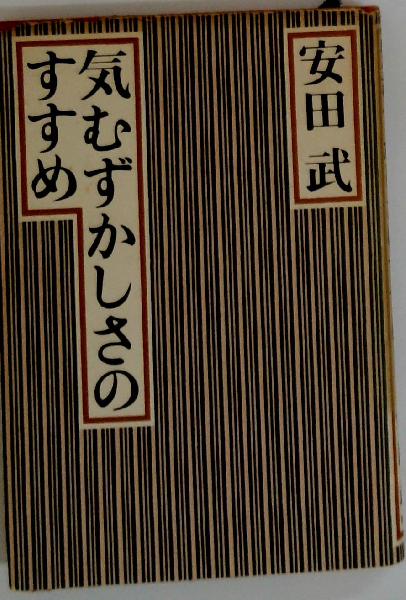 安田 武
気むずかしさの
すすめ